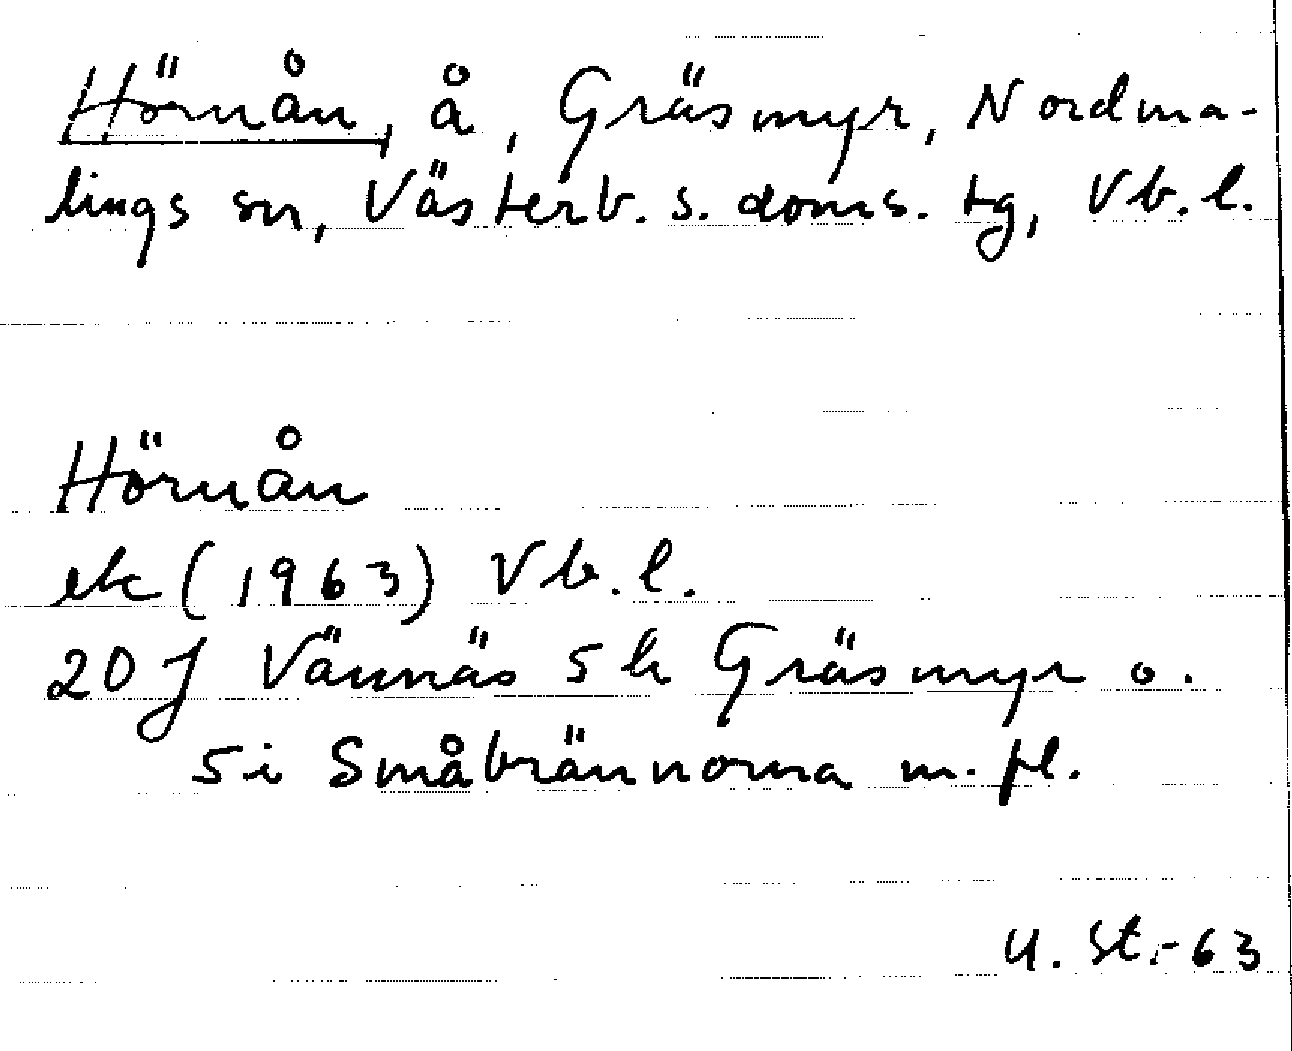 Hörnån, å, Gräsmyr, Nordma-
lings sn, Västerb. s. doms. tg, Vb. l.
Hörnån
ek (1963) Vb. l.
20 J Vännäs 5 h Gräsmyr o.
5 i Småbrännorna m. fl.
U. St. -63